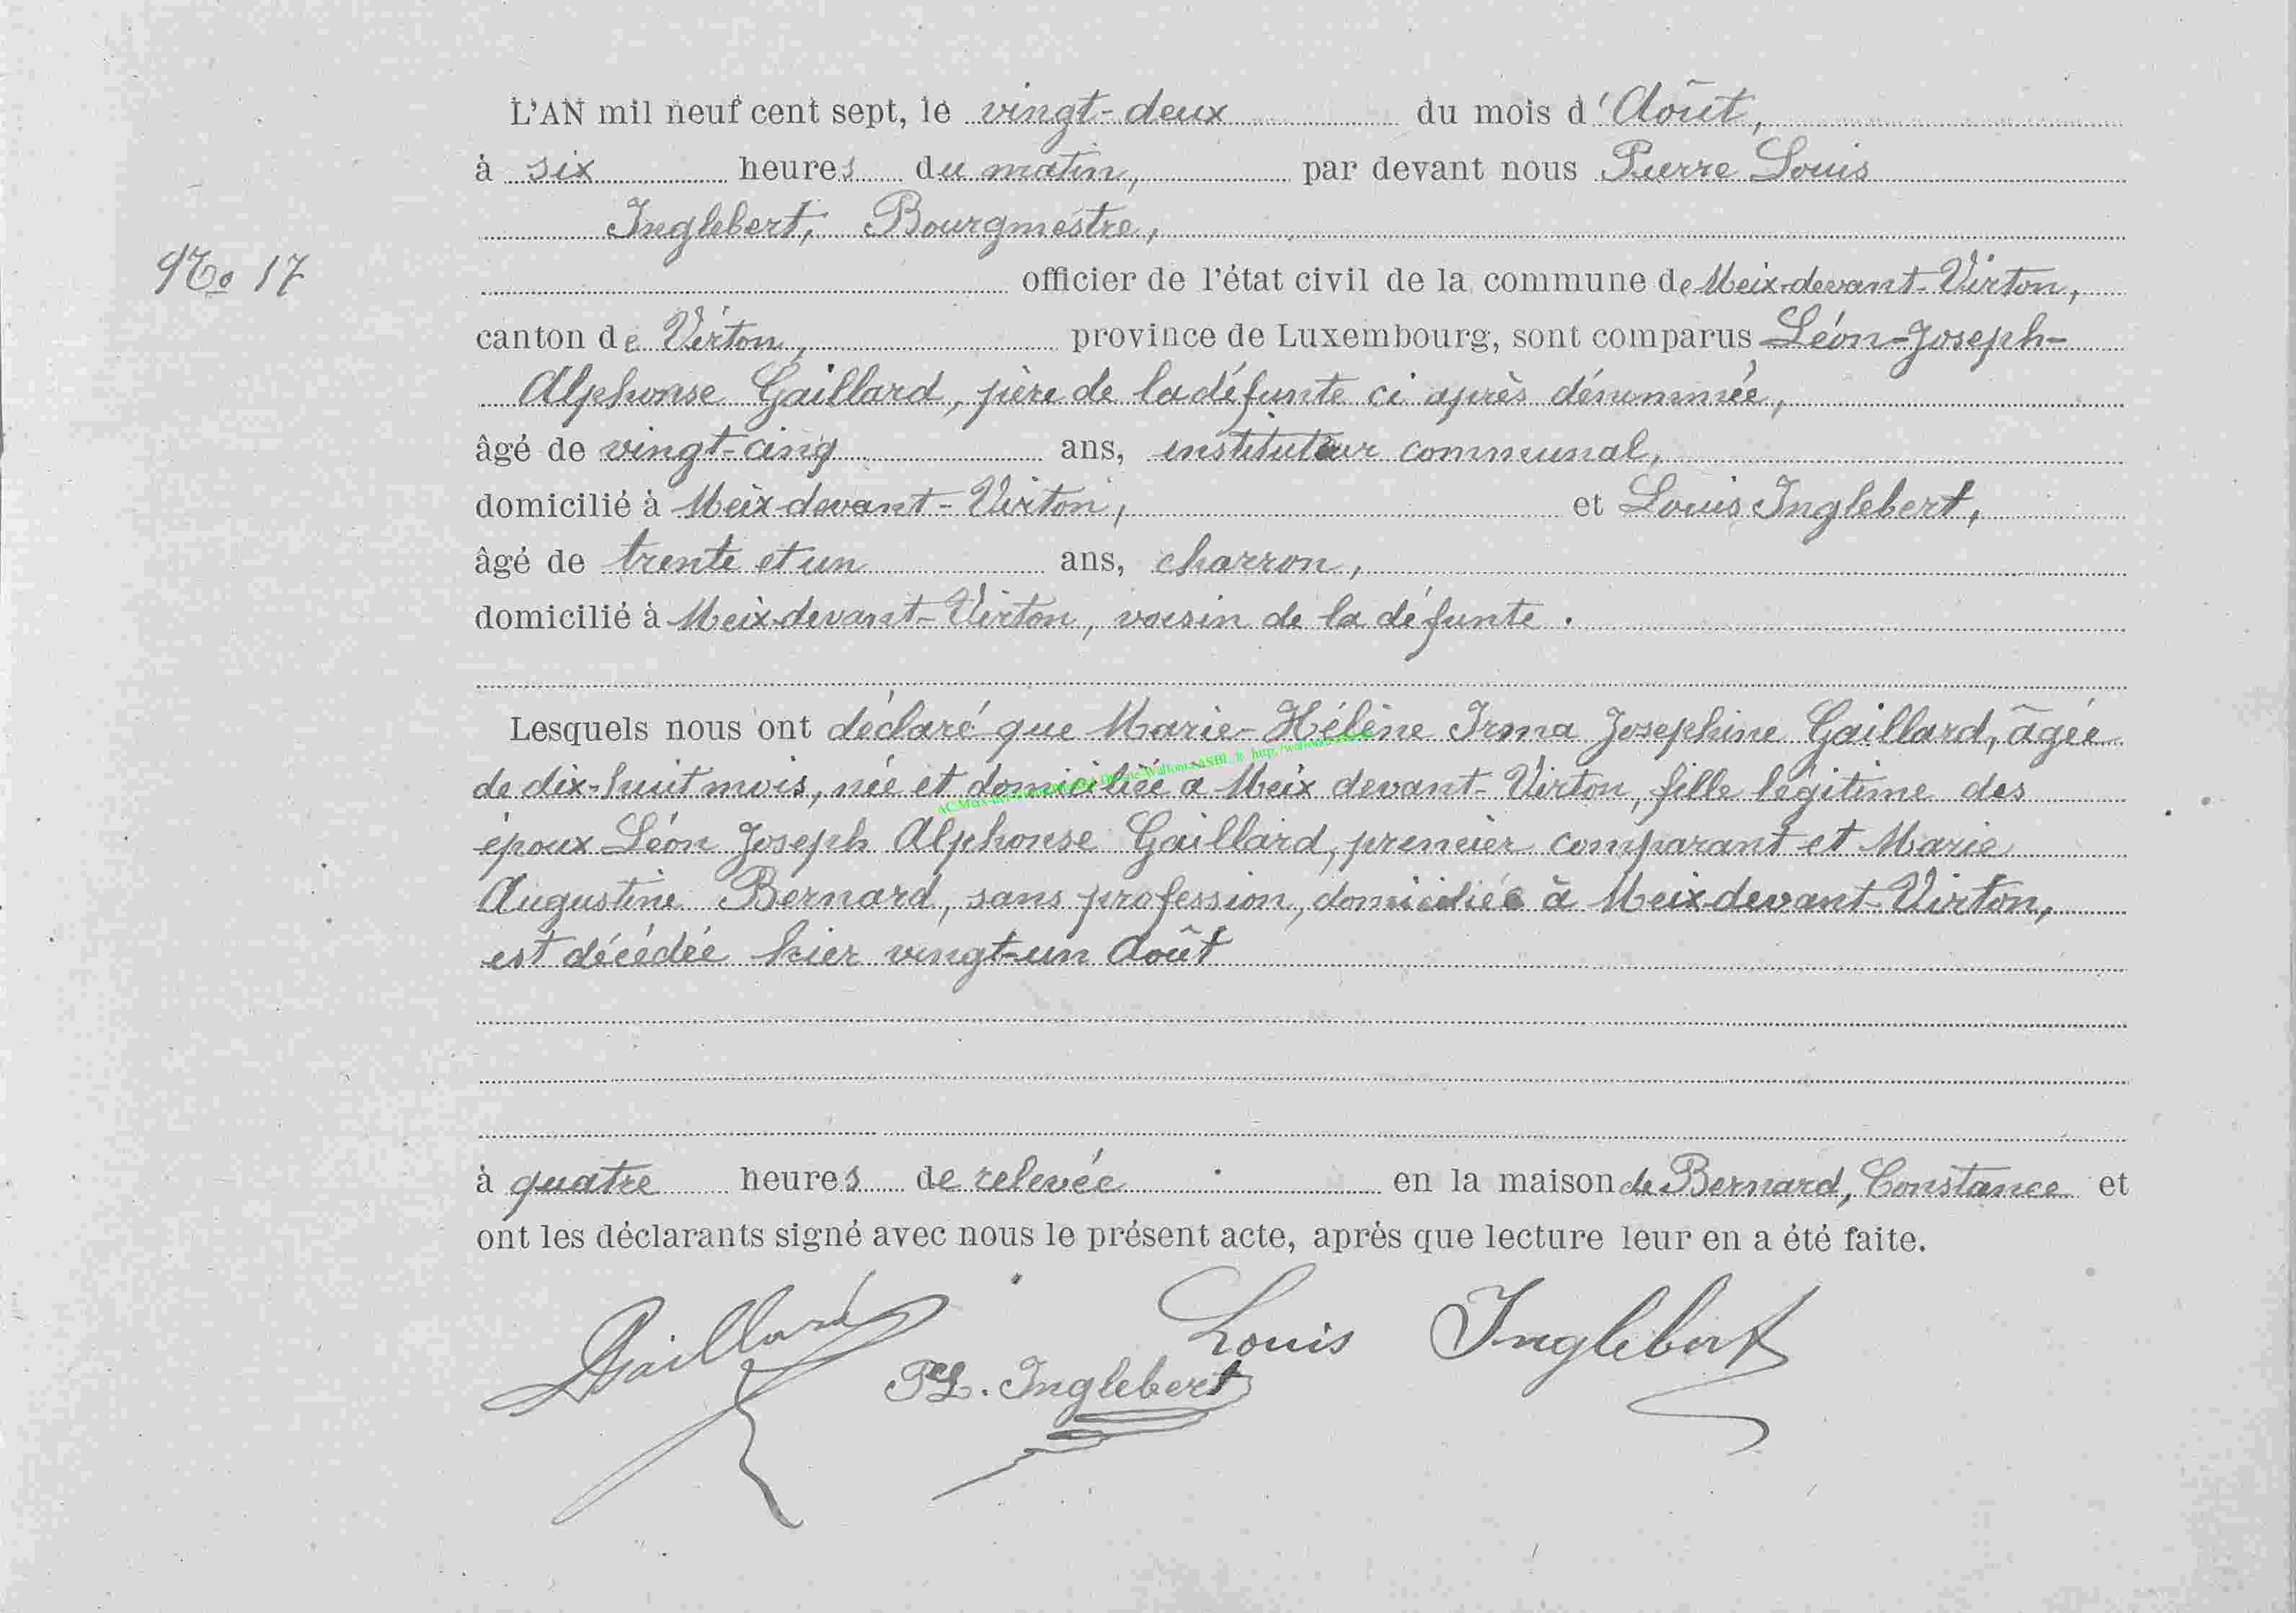 L'AN mil neuf cent sept, le vingt-deux du mois d'Août,
à six heures du matin, par devant nous Pierre Louis
Inglebert, Bourgmestre,
No 17
officier de l'état civil de la commune de Meix-devant-Virton,
canton de Virton, province de Luxembourg, sont comparus Léon-Joseph-
Alphonse Gaillard, père de la défunte ci après dénommée,
âgé de vingt-cinq ans, instituteur communal,
domicilié à Meix devant-Virton, et Louis Inglebert,
âgé de trente et un ans, charron,
domicilié à Meix-devant-Virton, voisin de la défunte.
Lesquels nous ont déclaré que Marie-Hélène Irma Josephine Gaillard, âgée
de dix-huit mois, née et domiciliée à Meix devant-Virton, fille légitime des
époux Léon Joseph Alphonse Gaillard, premier comparant et Marie
Augustine Bernard, sans profession, domiciliée à Meix devant-Virton,
est décédée hier vingt-un Août
à quatre heures de relevée en la maison de Bernard, Constance et
ont les déclarants signé avec nous le présent acte, après que lecture leur en a été faite.
Gaillard Louis Inglebert
PL. Inglebert